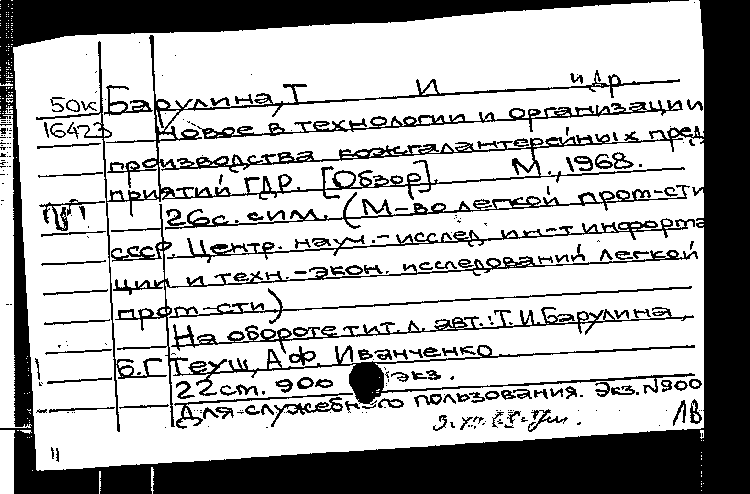 50к Барулина, Т И и др.
16423 Новое в технологии и организации
производства кожгалантерейных пред
приятий ГДР. [Обзор]. М., 1968.
26с. с илл. (М-во легкой пром-сти
СССР. Центр. науч.-исслед. ин-т информа
ции и техн.-экон. исследований легкой
пром-сти)
На обороте тит. л. авт.: Т.И.Барулина,
Б.Г. Теуш, А.Ф. Иванченко
22см. 900 экз.
Для служебного пользования. Экз. №900
1В
11